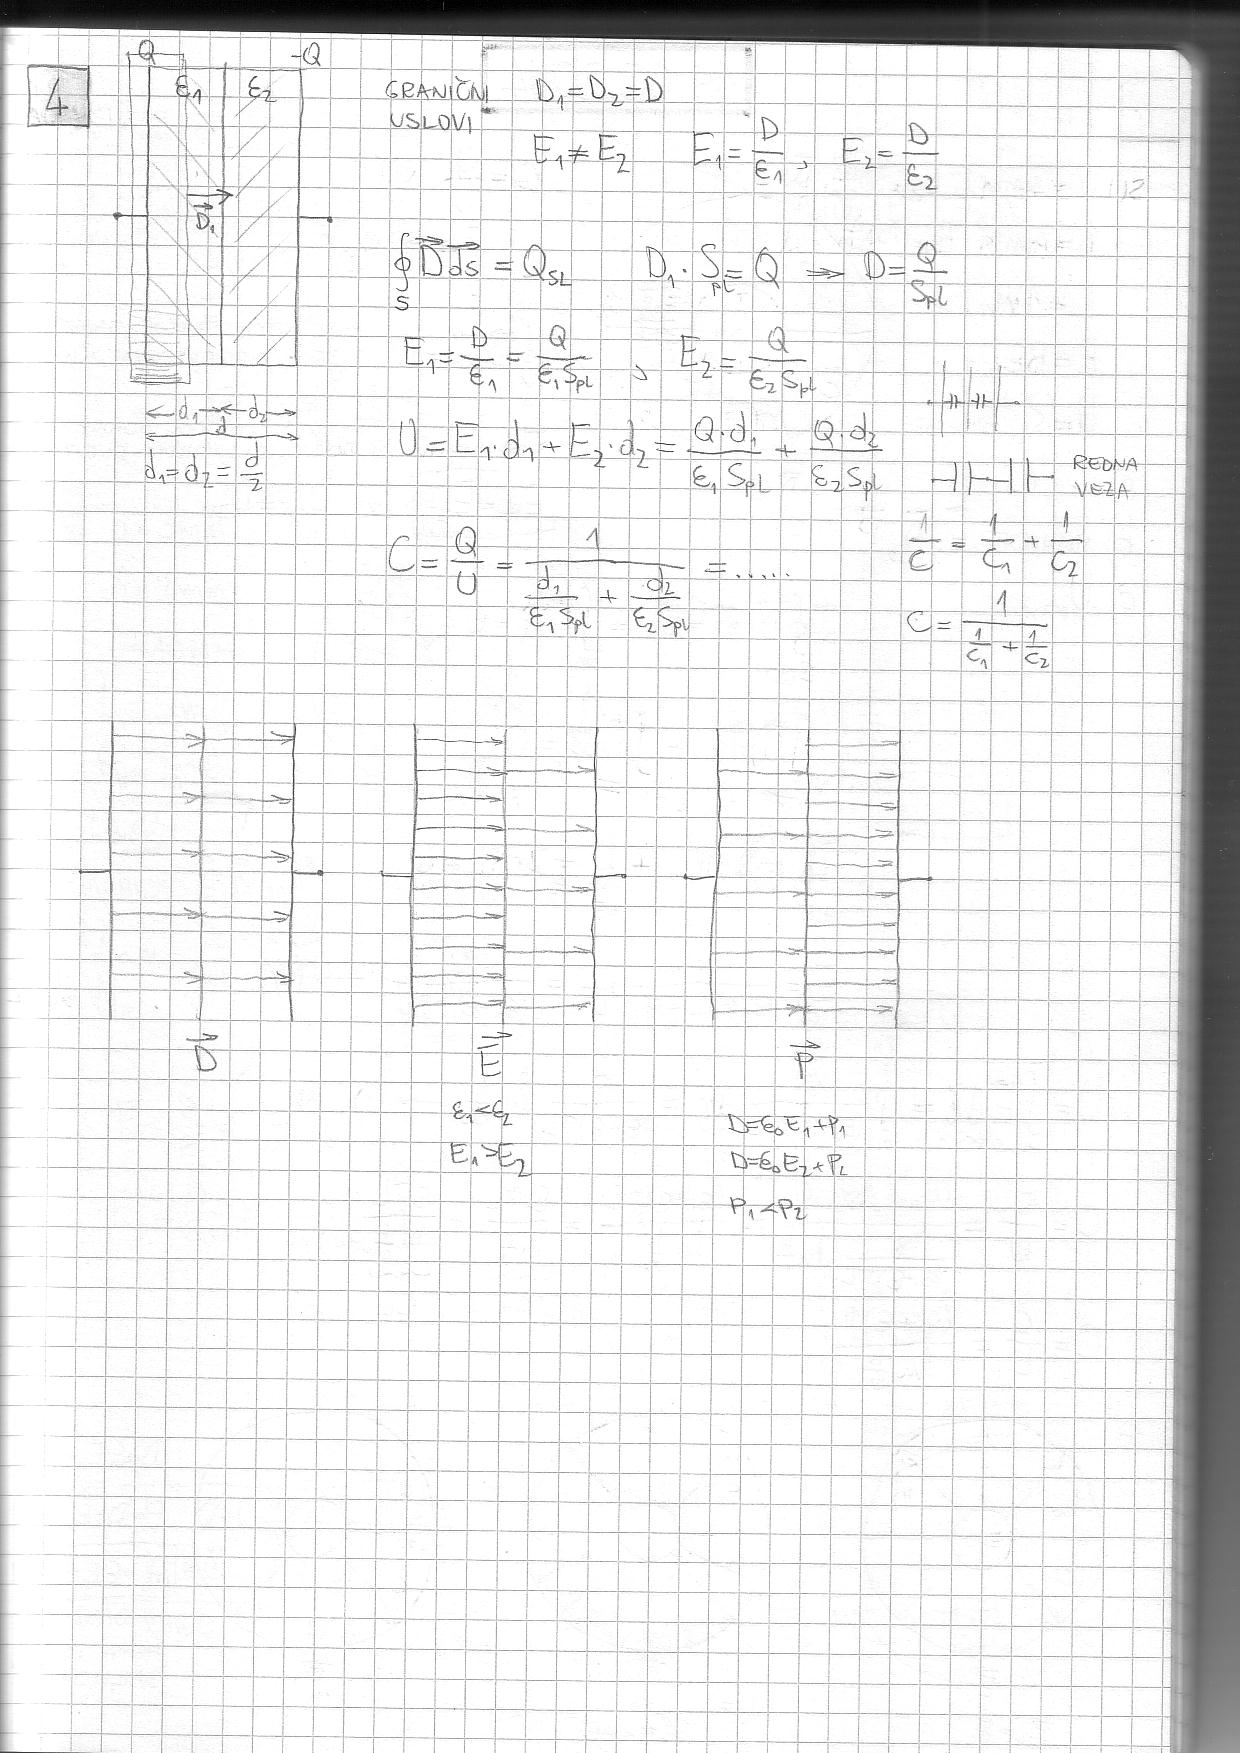 4
Q -Q
ε₁ ε₂
D⃗₁
d₁ d₂
d
d₁=d₂=d/2
GRANIČNI USLOVI D₁=D₂=D
E₁≠E₂ E₁=D/ε₁, E₂=D/ε₂
∮_S D⃗ ds⃗ = Q_SL D₁·S_pl=Q ⇒ D=Q/S_pl
E₁=D/ε₁=Q/(ε₁S_pl), E₂=Q/(ε₂S_pl)
U=E₁·d₁+E₂·d₂=Q·d₁/(ε₁S_pl)+Q·d₂/(ε₂S_pl)
REDNA VEZA
C=Q/U=1/(d₁/(ε₁S_pl)+d₂/(ε₂S_pl))=.....
1/C=1/C₁+1/C₂
C=1/(1/C₁+1/C₂)
D⃗ E⃗ P⃗
ε₁<ε₂
E₁>E₂
D=ε₀E₁+P₁
D=ε₀E₂+P₂
P₁<P₂